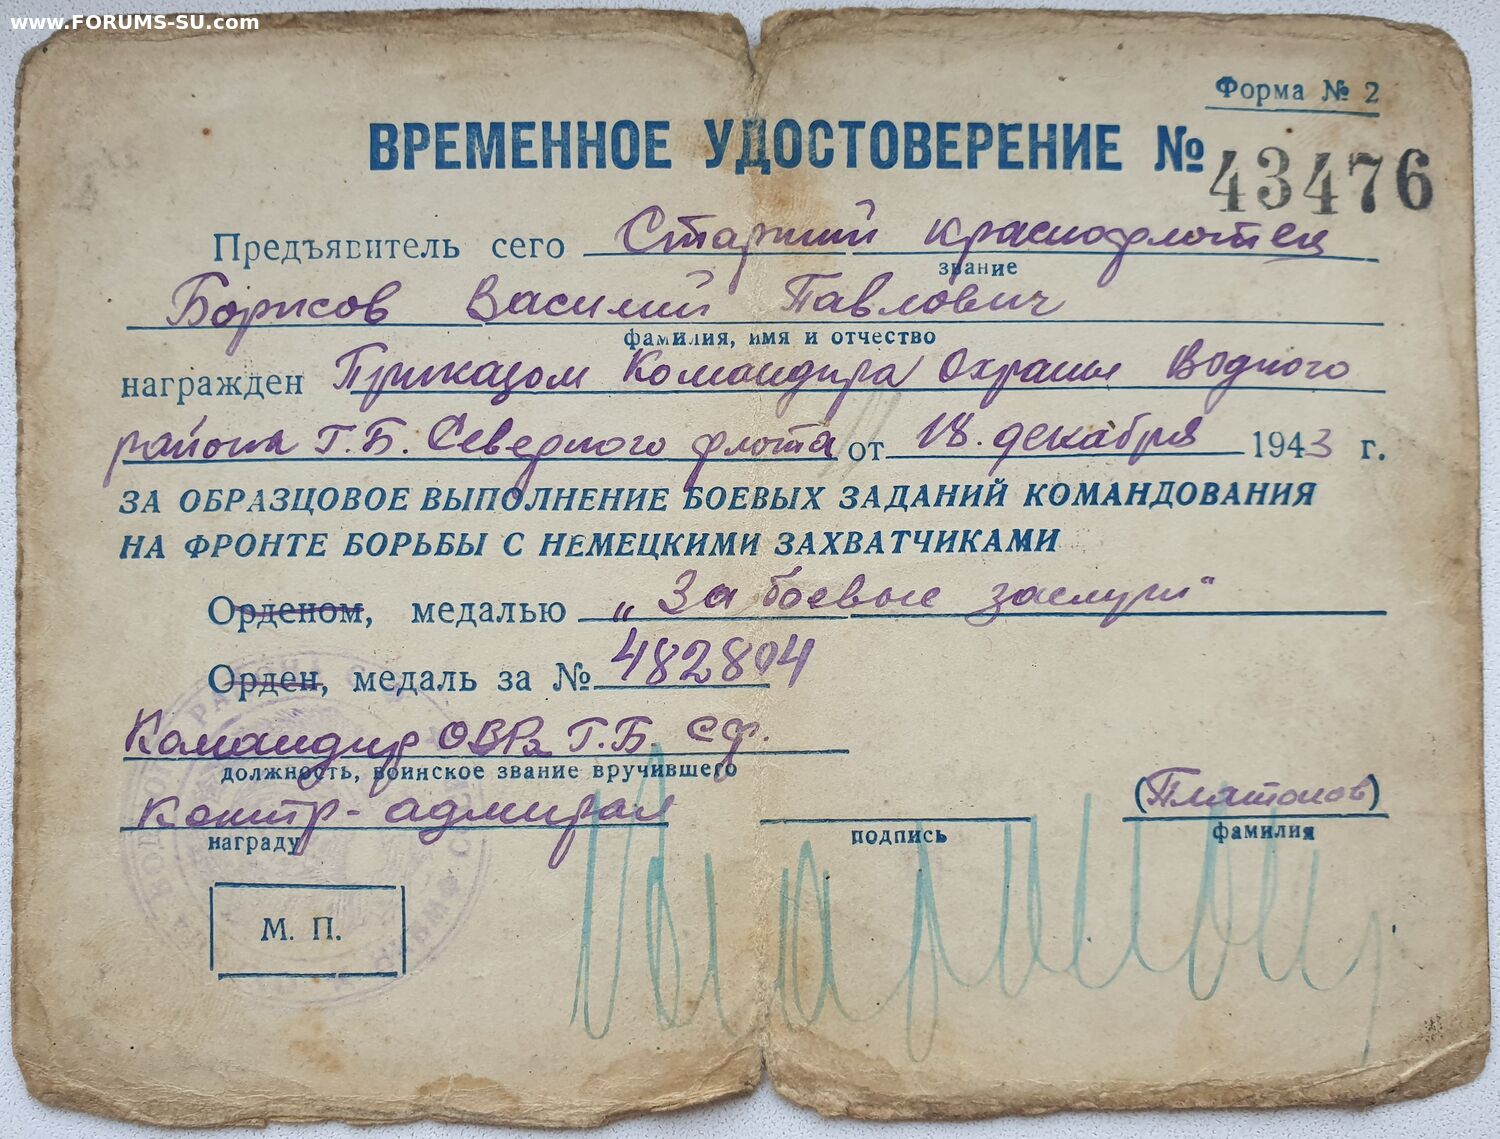 www.FORUMS-SU.com
Форма № 2
ВРЕМЕННОЕ УДОСТОВЕРЕНИЕ № 43476
Предъявитель сего Старший краснофлотец
звание
Борисов Василий Павлович
фамилия, имя и отчество
награжден Приказом Командира Охраны Водного
района Г.Б. Северного флота от 18. декабря 1943 г.
ЗА ОБРАЗЦОВОЕ ВЫПОЛНЕНИЕ БОЕВЫХ ЗАДАНИЙ КОМАНДОВАНИЯ
НА ФРОНТЕ БОРЬБЫ С НЕМЕЦКИМИ ЗАХВАТЧИКАМИ
Орденом, медалью „За боевые заслуги"
Орден, медаль за № 482804
Командир ОВРа Г.Б. СФ.
должность, воинское звание вручившего
контр-адмирал (Платонов)
награду подпись фамилия
М. П.